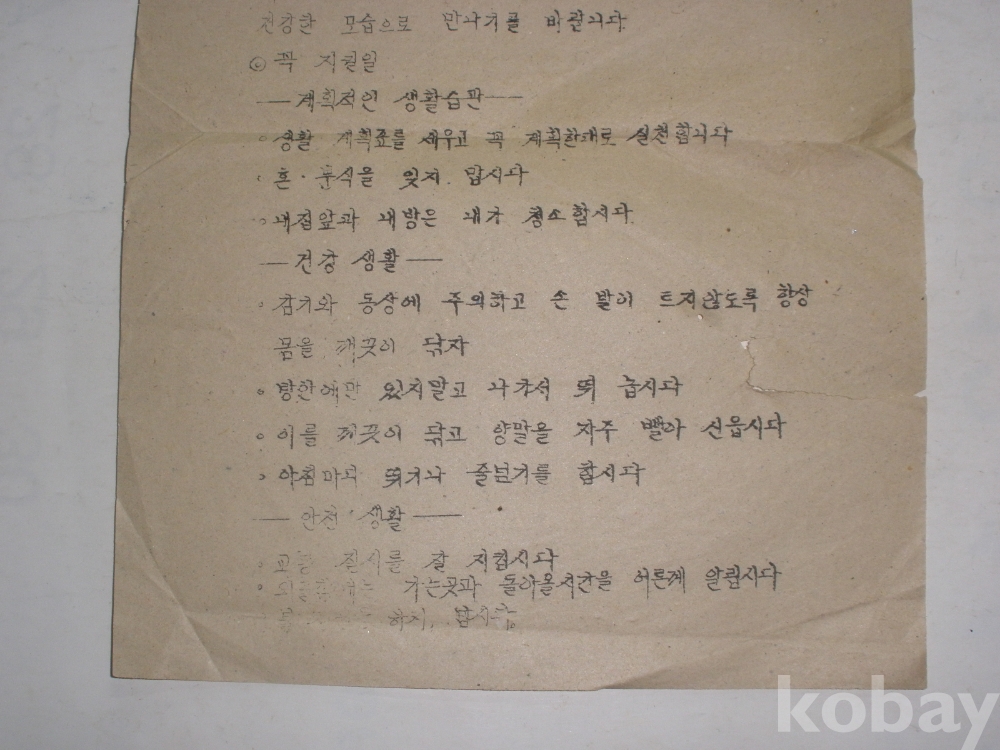 건강한 모습으로 만나기를 바랍니다.
◎ 꼭 지킬일
—계획적인 생활습관—
◦ 생활 계획표를 세우고 꼭 계획한대로 실천합니다
◦ 혼·분식을 잊지 맙시다
◦ 내집앞과 내방은 내가 청소합시다.
— 건강 생활 —
◦ 감기와 동상에 주의하고 손 발이 트지않도록 항상
몸을 깨끗이 닦자
◦ 방안에만 있지말고 나가서 뛰 놉시다
◦ 이를 깨끗이 닦고 양말을 자주 빨아 신읍시다
◦ 아침마다 뛰기나 줄넘기를 합시다
— 안전·생활 —
◦ 교통 질서를 잘 지킵시다
◦ 가는곳과 돌아올시간을 어른께 알립시다
하지 맙시다.
kobay